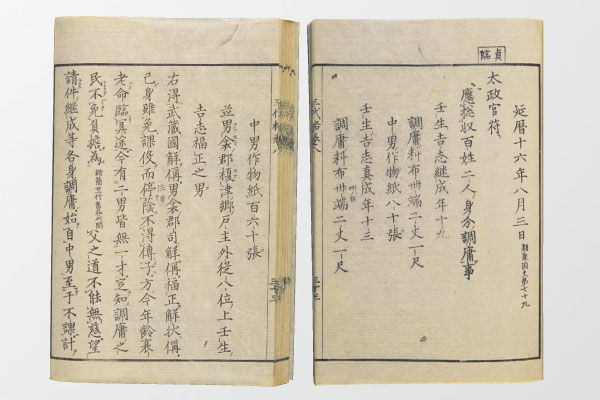 貞臨
延暦十六年八月三日 類聚国史第七十九
太政官符
應㧾収百姓二人身分調庸事
壬生吉志継成年十九
調庸料布卌端二丈一尺
中男作物紙八十張
壬生吉志真成年十三
調庸料布卌端二丈一尺
中男作物紙百六十張
並男衾郡榎津郷戸主外従八位上壬生
吉志福正之男
右得武藏國解偁男衾郡司解偁福正解状偁
己身雖免課役而停蔭不得傳子方今年齢衰
老命臨冥途今有二男皆無一才豈知調庸之
民不免負擔為父之道不能無慈望
請件継成等各身調庸始自中男至于不課計